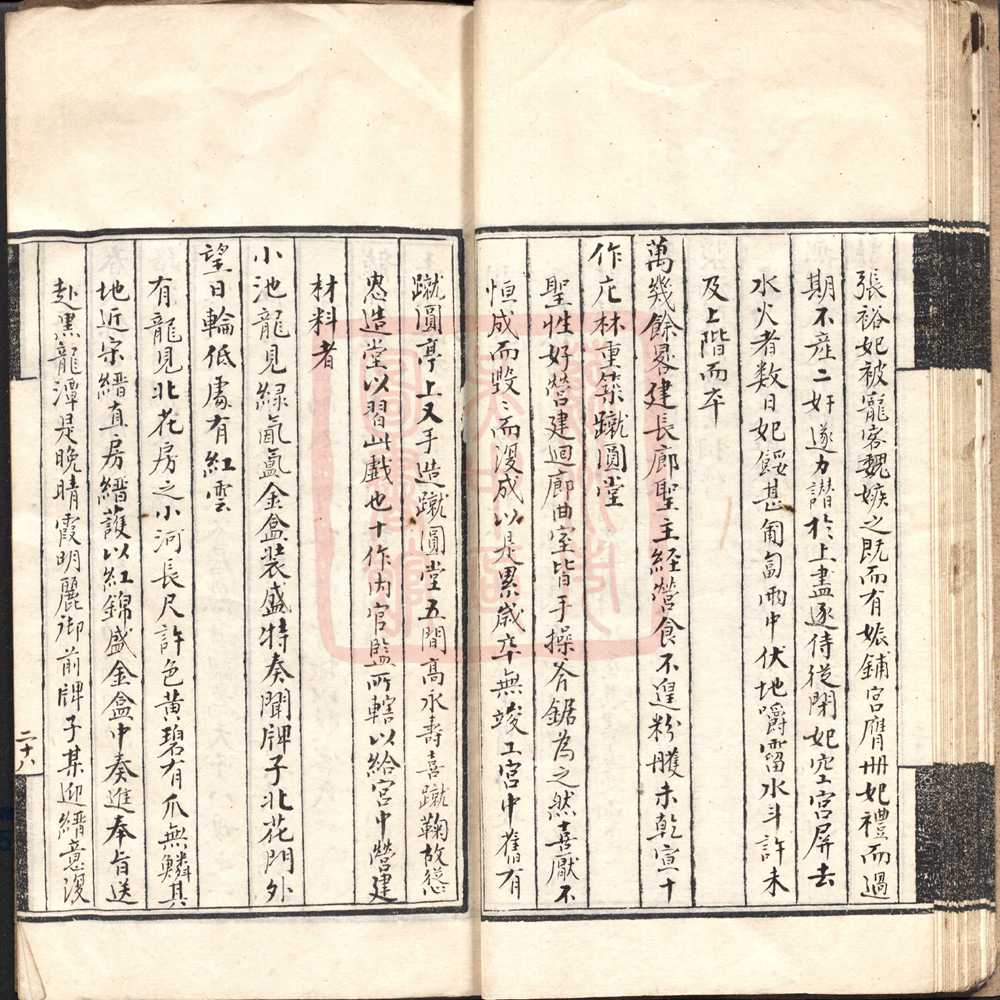 張裕妃被寵客魏嫉之既而有娠鋪宮膺冊妃禮而過
期不産二奸遂力譖於上盡逐侍從閉妃空宮屏去
水火者数日妃餒甚匍匐雨中伏地嚼霤水斗許未
及上階而卒
萬幾餘晷建長廊聖主經營食不遑粉雘未乾宣十
作庀林重築蹴圓堂
聖性好營建迴廊曲室皆手操斧鋸為之然喜厭不
恒成而毀〻而復成以是累歲卒無竣工宮中舊有
蹴圓亭上又手造蹴圓堂五間高永壽喜蹴鞠故慫
恿造堂以習此戲也十作内官監所轄以給宮中營建
材料者
小池龍見緑氤氲金盒装盛特奏聞牌子北花門外
望日輪低處有紅雲
有龍見北花房之小河長尺許色黄碧有爪無鱗其
地近宋縉直房縉護以紅錦盛金盒中奏進奉旨送
赴黒龍潭是晩晴霞明麗御前牌子某迎縉意漫
二十八